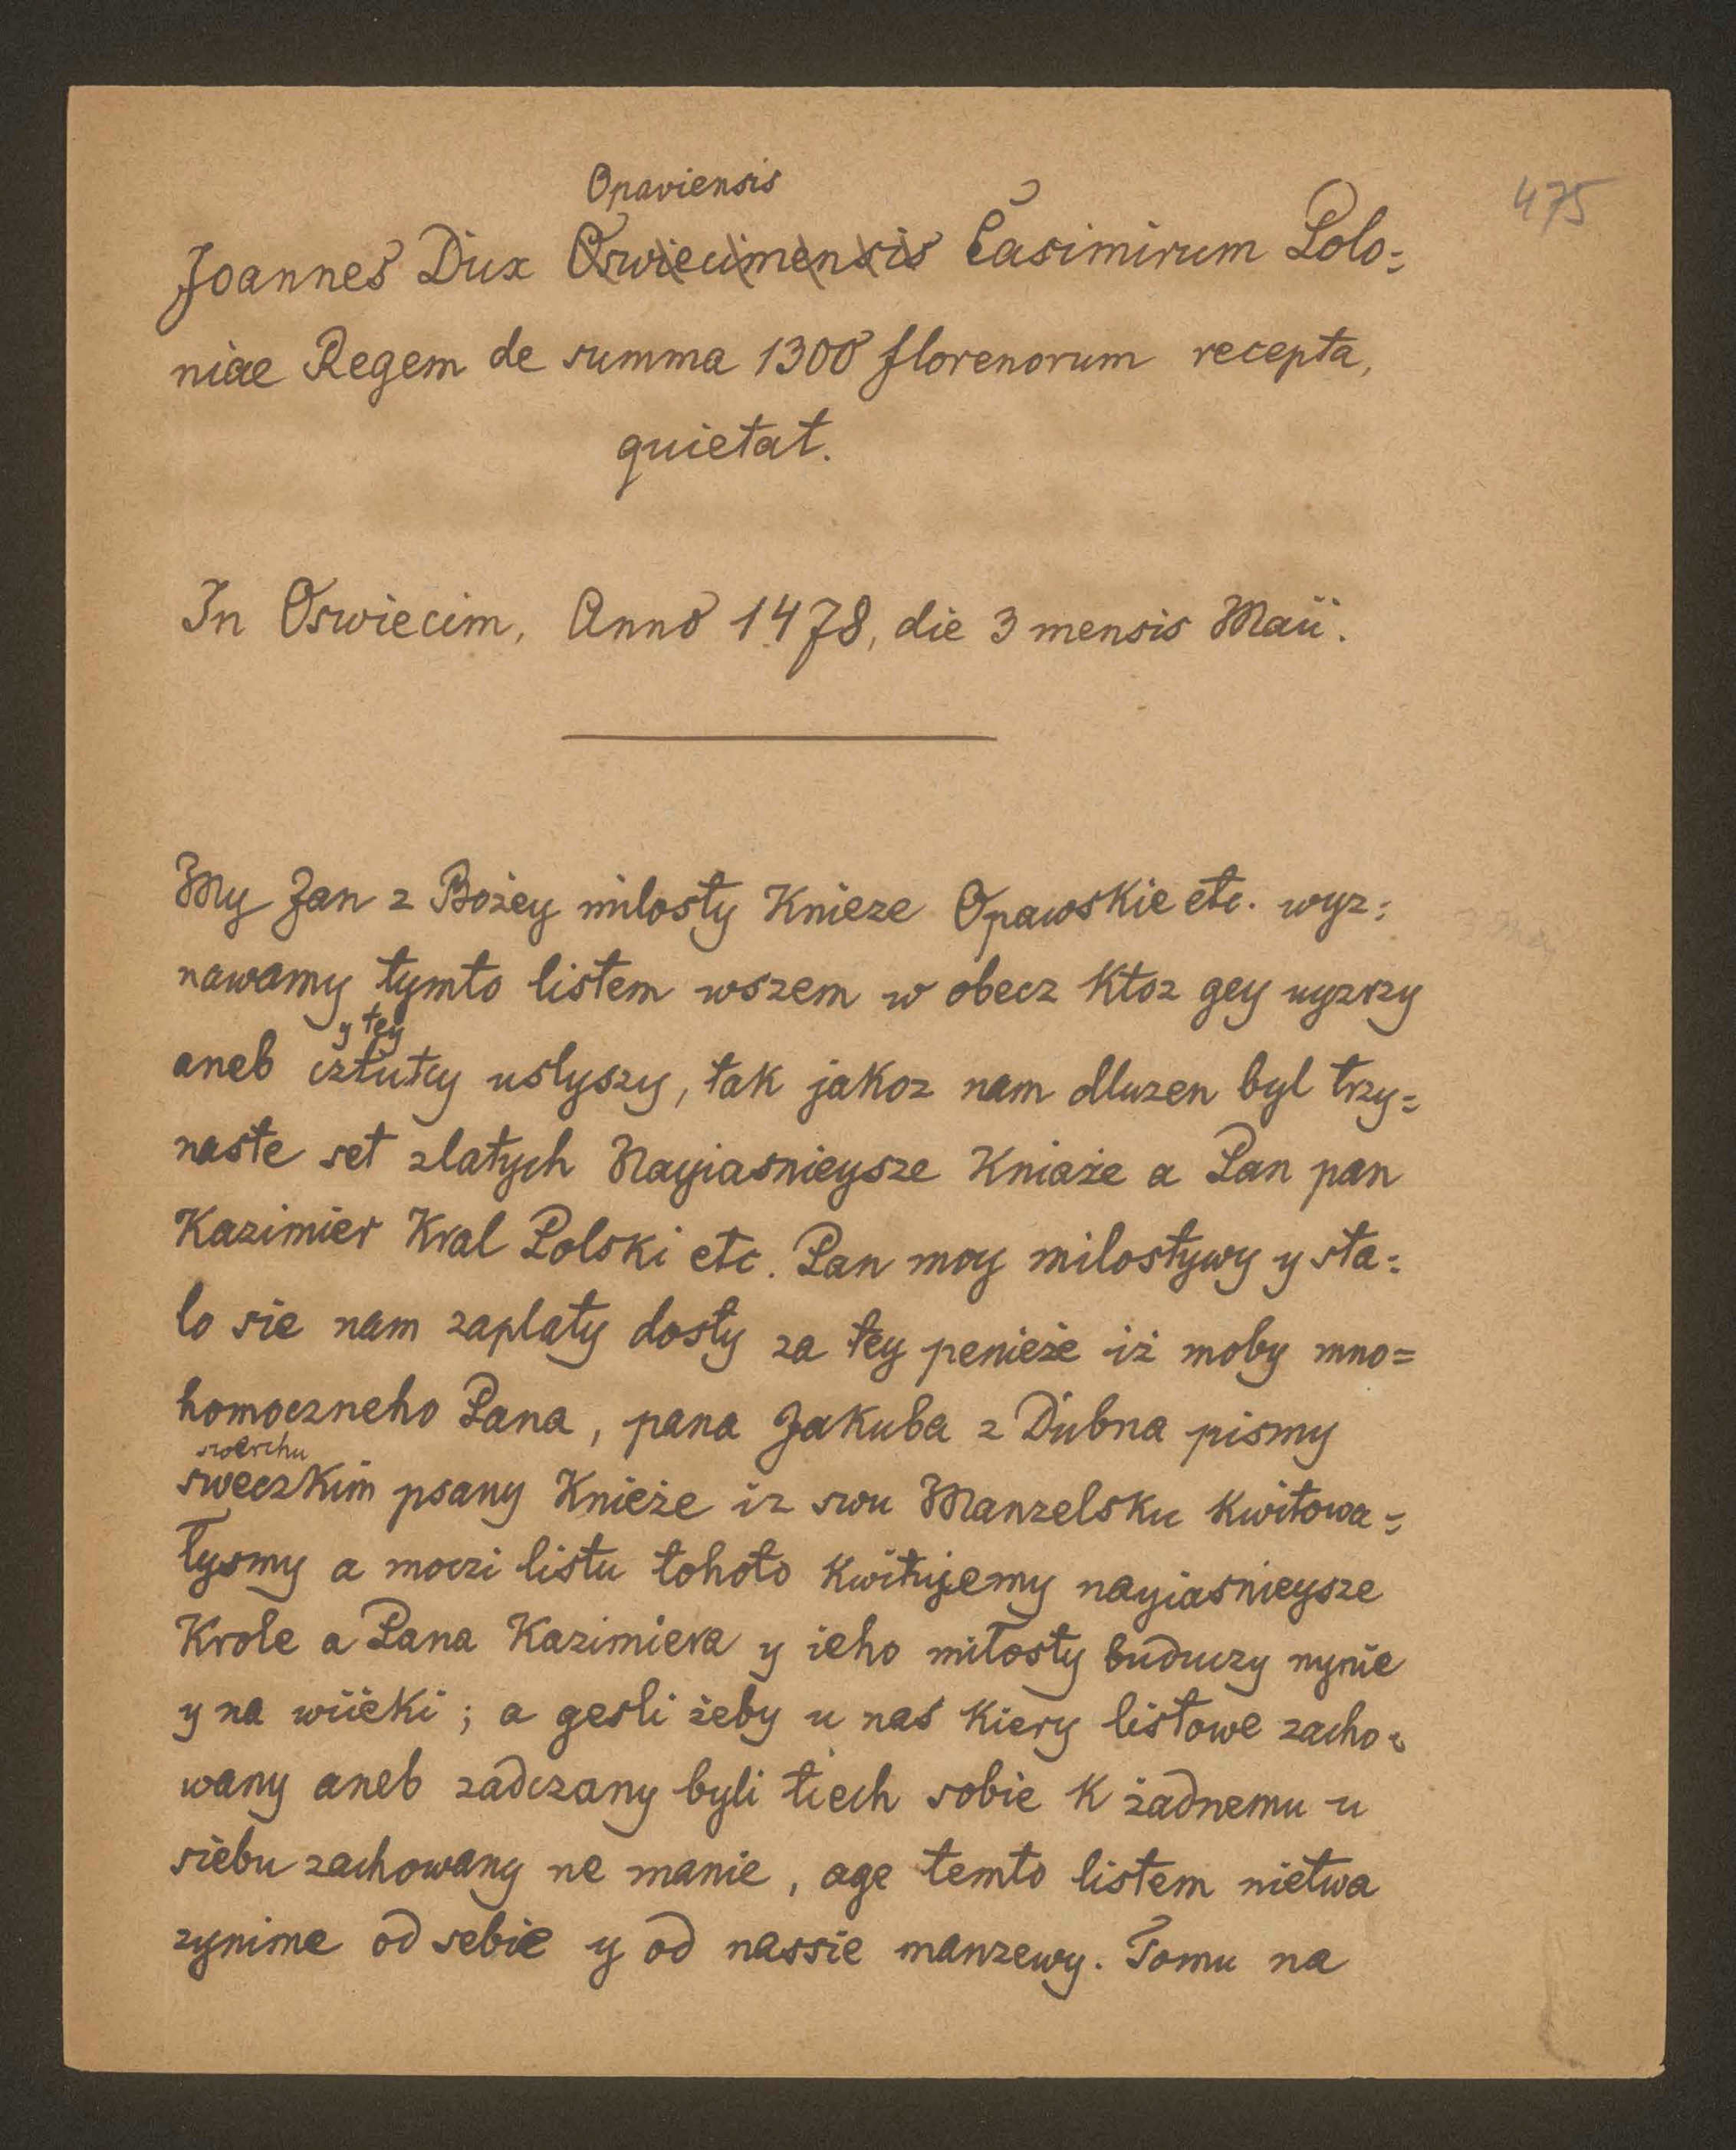 475
Opaviensis
Joannes Dux Oswiecimensis Casimirum Polo=
niae Regem de summa 1300 florenorum recepta,
quietat.
In Oswiecim, Anno 1478, die 3 mensis Maii.
My Jan z Bożey milosty Knieze Opawskie etc. wyz=
nawamy tymto listem wszem w obecz Ktoz gey uyzrzy
y tey
aneb cztutcy uslyszy, tak jakoz nam dluzen byl trzy=
naste set zlatych Nayiasnieysze Kniaże a Pan pan
Kazimier Kral Polski etc. Pan moy milostywy y sta=
lo sie nam zaplaty dosty za tey penieże iż moby mno=
homoczneho Pana, pana Jakuba z Dubna pismy
swerchu
sweczkim psany Knieże iz swu Manzelsku Kwitowa=
lysmy a moczi listu tohoto Kwitujemy nayiasnieysze
Krole a Pana Kazimiera y ieho milosty buduczy nynie
y na wiieki; a gesli żeby u nas Kiery listowe zacho=
wany aneb zadczany byli tiech sobie K żadnemu u
siebu zachowany ne manie, age temto listem nietwa
zynime od sebie y od nassie manzewy. Tomu na